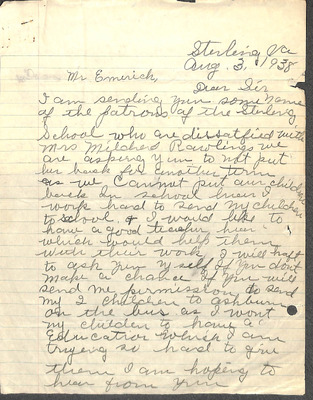 Sterling Va
Aug. 3, 1938
Mr Emerick,
Dear Sir
I am sending you some name
of the Patrons of the Sterling
School who are dissatfied with
Mrs Mildred Rawlings we
are asking you to not put
her back for another term
as we Cannot put our children
back in school hear I
work hard to send my children
to school & I would like to
have a good teacher hear
which would help them
with their work. I will haft
to ask you myself if you dont
make a change if you will
send me permission to send
my 2 children to ashburn
on the bus as I wont
my children to have a
Education which I am
trying so hard to give
them I am hopeing to
hear from you